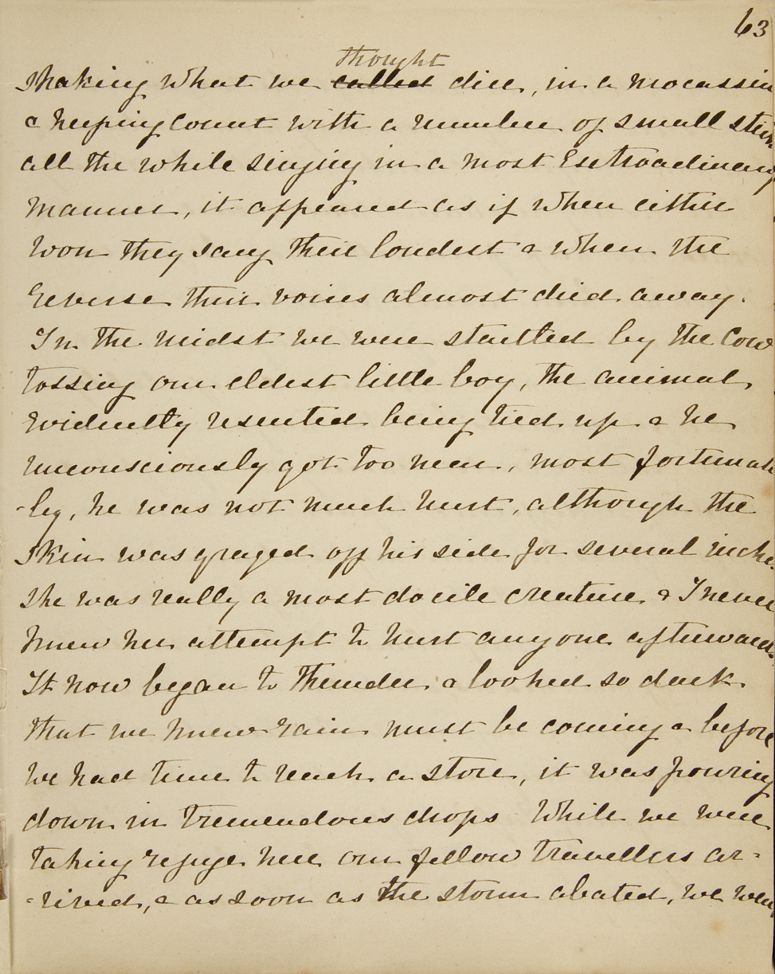 63
thought
shaking what we called dice, in a mocassin
& keeping count with a number of small
all the while singing in a most Extroadinary
manner, it appeared as if when either
won they sang their loudest & when the
reverse their voices almost died away.
In the midst we were startled by the cow
tossing our eldest little boy, the animal
evidently resented being tied up & he
unconsciously got too near, most fortunate
-ly, he was not much hurt, although the
skin was grazed off his side for several inches
she was really a most docile creature & I never
knew her attempt to hurt anyone afterwards
It now began to thunder & looked so dark
that we knew rain must be coming & before
we had time to reach a store, it was pouring
down in tremendous drops While we were
taking refuge here our fellow travellers ar-
-rived, & as soon as the storm abated, we